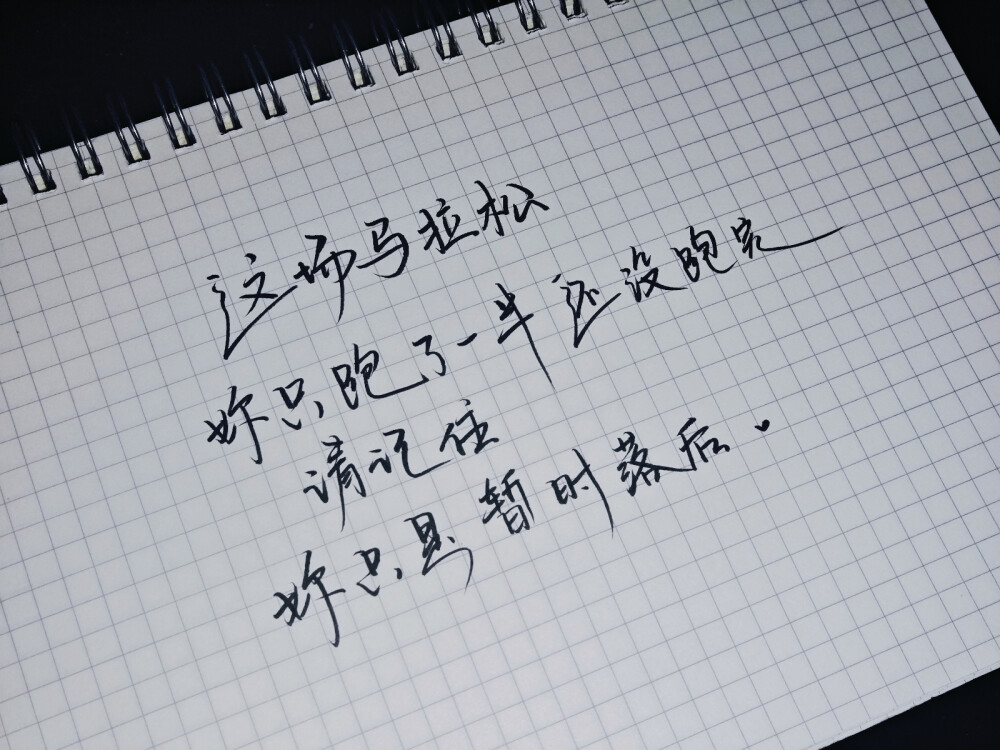 这场马拉松
妳只跑了一半 还没跑完
请记住
妳只是暂时落后.